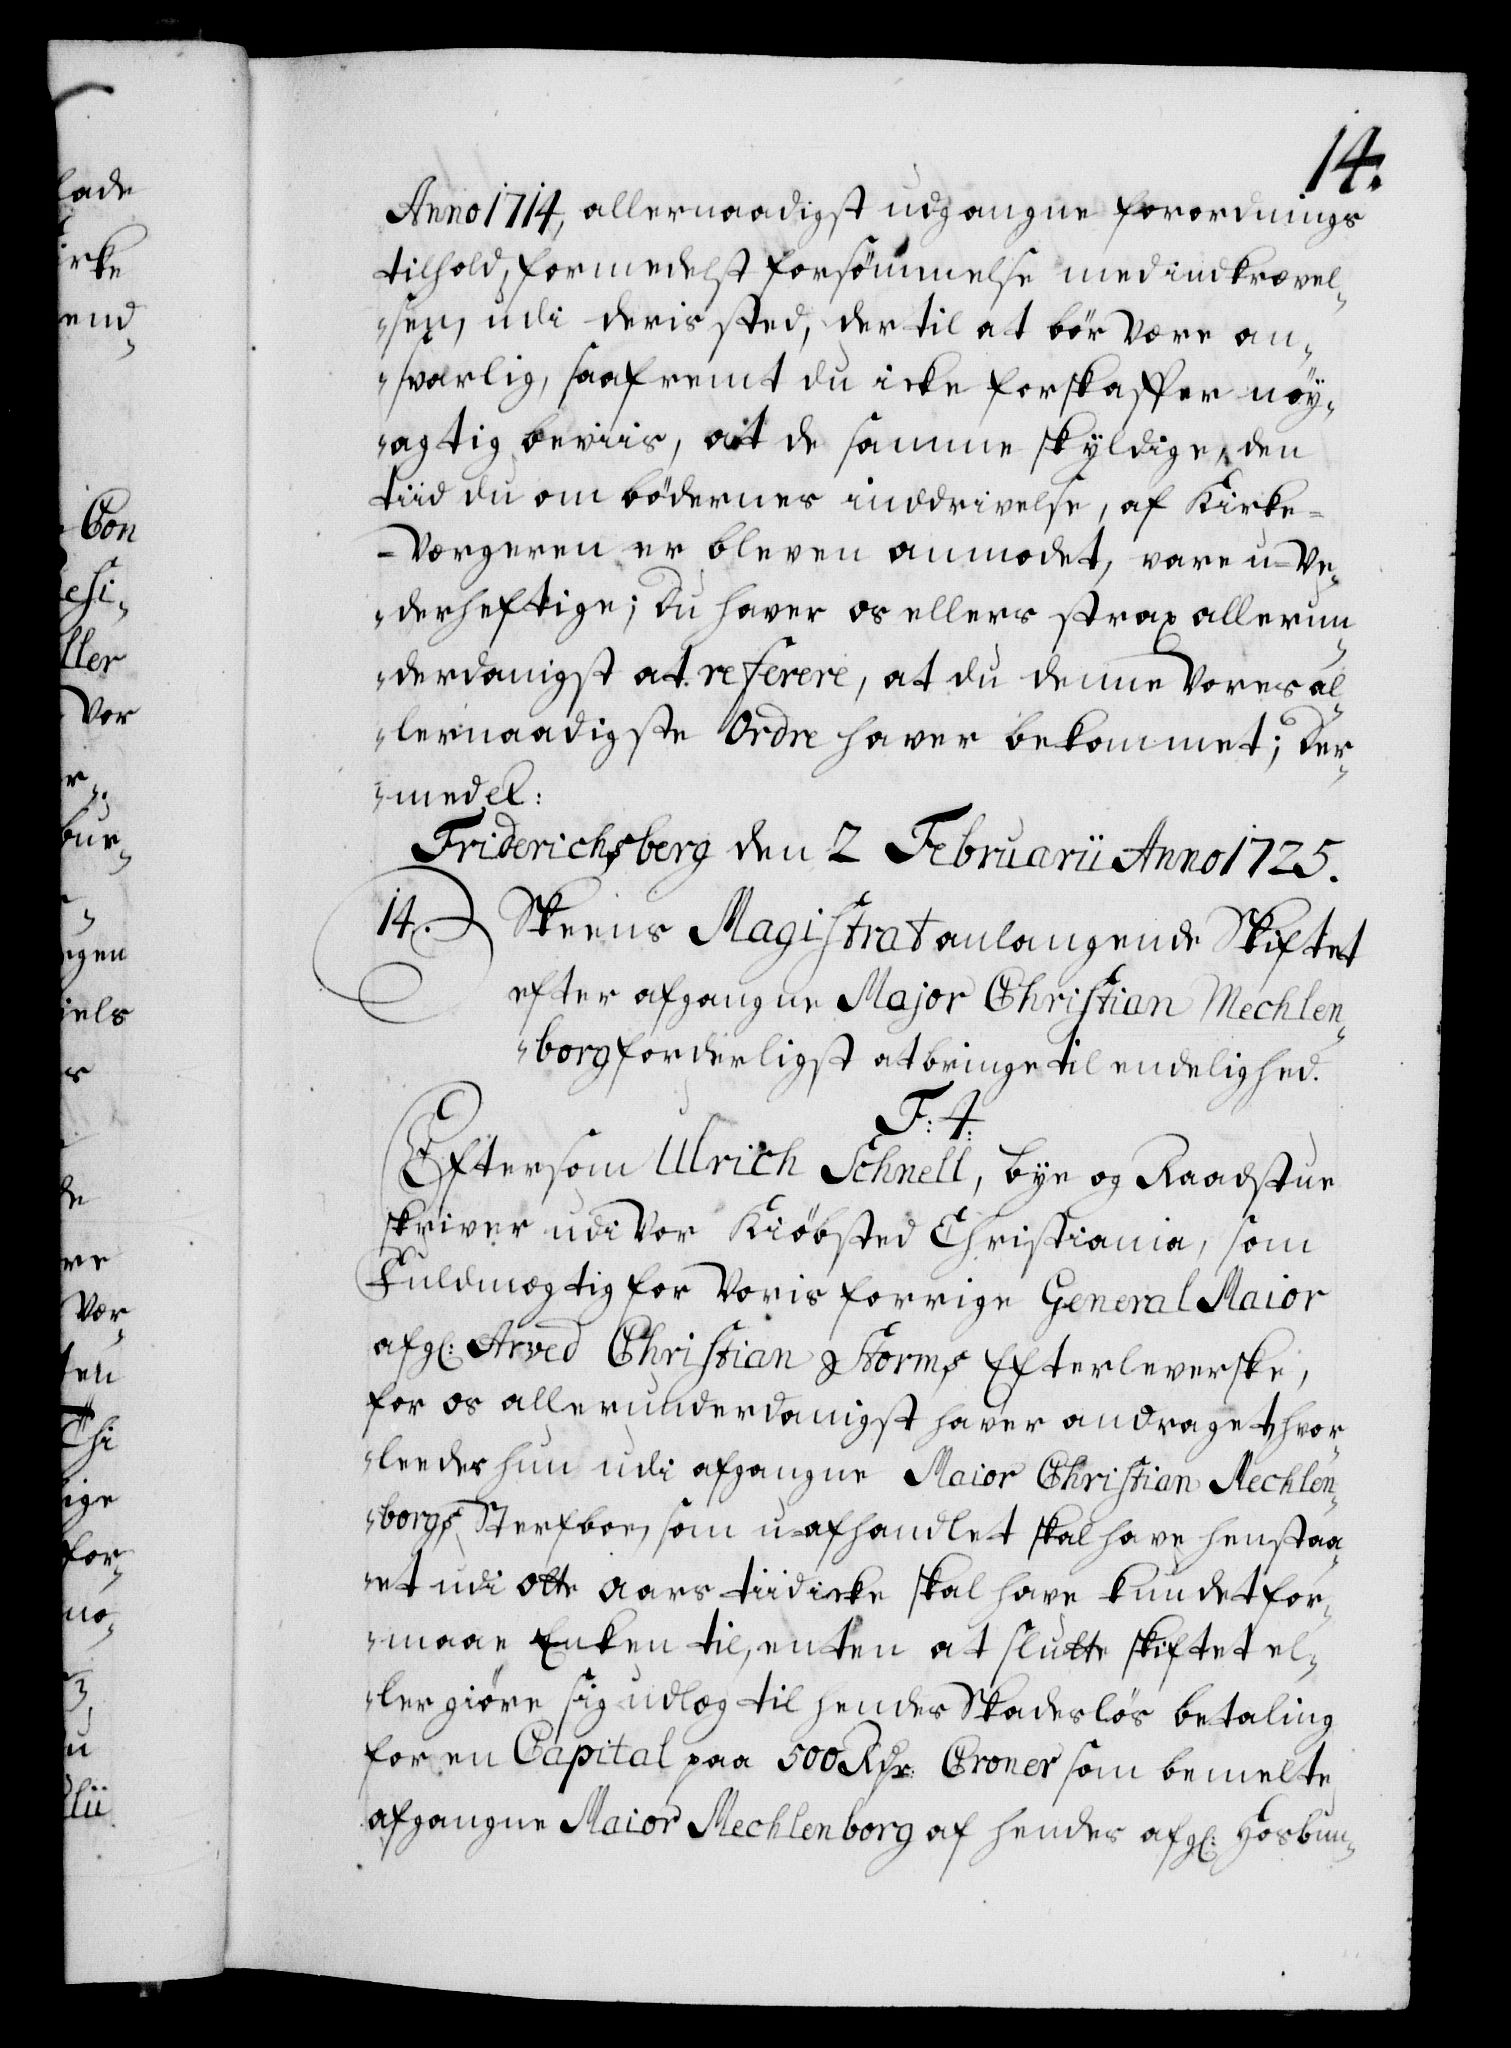 14.
Anno 1714, allernaadigst udgangne forordnings
tilhold, formedelst forsömmelse med indkrævel„
„sen, udi deris sted, der til at bör være an„
„svarlig, saafremt du icke forskaffer nöy„
„agtig beviis, at de samme skyldige, den
tiid du om bödernes inddrivelse, af Kirke=
=Værgeren er bleven anmodet, vare u-ve„
„derheftige; Du haver os ellers strax allerun„
„derdanigst at referere, at du denne Vores al„
„lernaadigste Ordre haver bekommet; Der„
„med etc:
Friderichsberg den 2 Februarii Anno 1725.
14. Skeens Magistrat anlangende Skiftet
efter afgangne Major Christian Mechlen„
„borg forderligst at bringe til endelighed.
F: 4:
Eftersom Ulrich Schnell, bye og Raadstue
skriver udi Vor Kiöbsted Christiania, som
Fuldmægtig for Voris forrige General Maior
afg: Arved Christian Storms Efterleverske,
for os allerunderdanigst haver andraget, hvor„
„ledes hun udi afgangne Maior Christian Mechlen„
„borgs Sterfboe, som u-afhandlet skal have henstaa„
„et udi otte aars tiid icke skal have kundet for„
„maae Enken til, enten at slutte skiftet el„
„ler giöre sig udlæg til hendes Skadeslös betaling
for en Capital paa 500 Rdr: Croner som bemelte
afgangne Maior Mechlenborg af hendes afg: Hosbun„
lade
irke
end„
Con
esi„
ller
Vor
r„
bur„
ngen
iels
s
de
ere
Vær„
ten
Chi
ige
for„
no„
u
lii